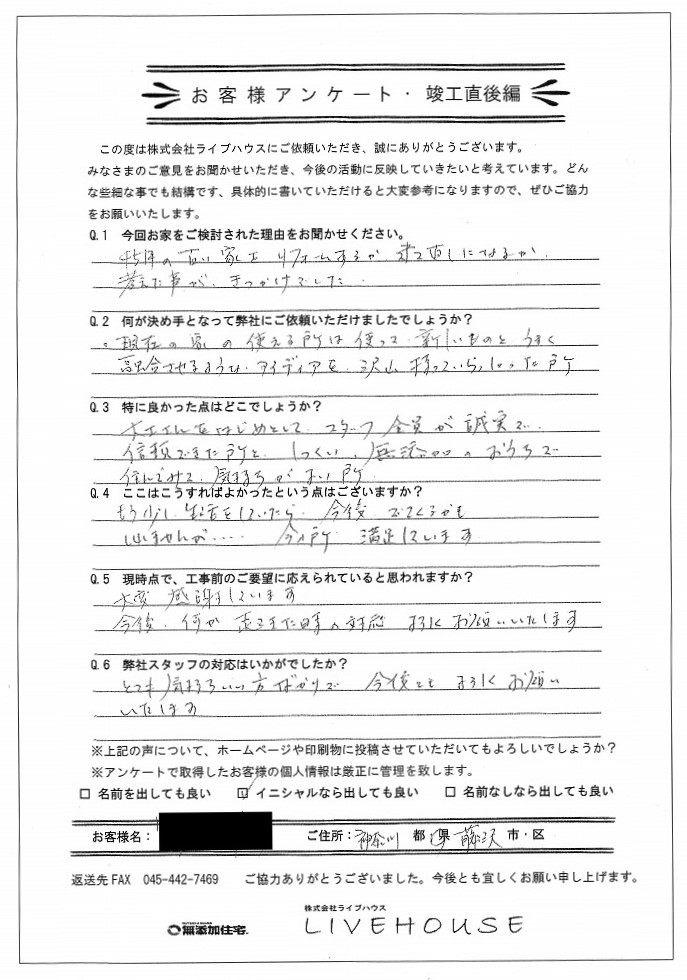 お客様アンケート・竣工直後編
この度は株式会社ライブハウスにご依頼いただき、誠にありがとうございます。
みなさまのご意見をお聞かせいただき、今後の活動に反映していきたいと考えています。どん
な些細な事でも結構です、具体的に書いていただけると大変参考になりますので、ぜひご協力
をお願いいたします。
Q.1 今回お家をご検討された理由をお聞かせください。
45年の古い家をリフォームするか 建て直しになるか
考えた事が、きっかけでした
Q.2 何が決め手となって弊社にご依頼いただけましたでしょうか？
・現在の家の使える所は使って 新しいものとうまく
融合させるような アイディアを 沢山 持っていらっしゃった所
Q.3 特に良かった点はどこでしょうか？
大工さんをはじめとして スタッフ 全員が誠実で
信頼できた所と しっくい、無添加のおうちで
住んでみて 気持ちがよい所
Q.4 ここはこうすればよかったという点はございますか？
もう少し 生活をしていたら 今後 でてくるかも
しれませんが‥‥ 今の所 満足しています
Q.5 現時点で、工事前のご要望に応えられていると思われますか？
大変 感謝しています
今後、何か 起こった時の対応 よろしくお願いいたします
Q.6 弊社スタッフの対応はいかがでしたか？
とても気持ちいい方ばかりで 今後とも よろしくお願い
いたします
※上記の声について、ホームページや印刷物に投稿させていただいてもよろしいでしょうか？
※アンケートで取得したお客様の個人情報は厳正に管理を致します。
□ 名前を出しても良い ☑ イニシャルなら出しても良い □ 名前なしなら出しても良い
お客様名： ご住所：神奈川 都 県 藤沢 市・区
返送先 FAX 045-442-7469 ご協力ありがとうございました。今後とも宜しくお願い申し上げます。
株式会社ライブハウス
無添加住宅 LIVEHOUSE